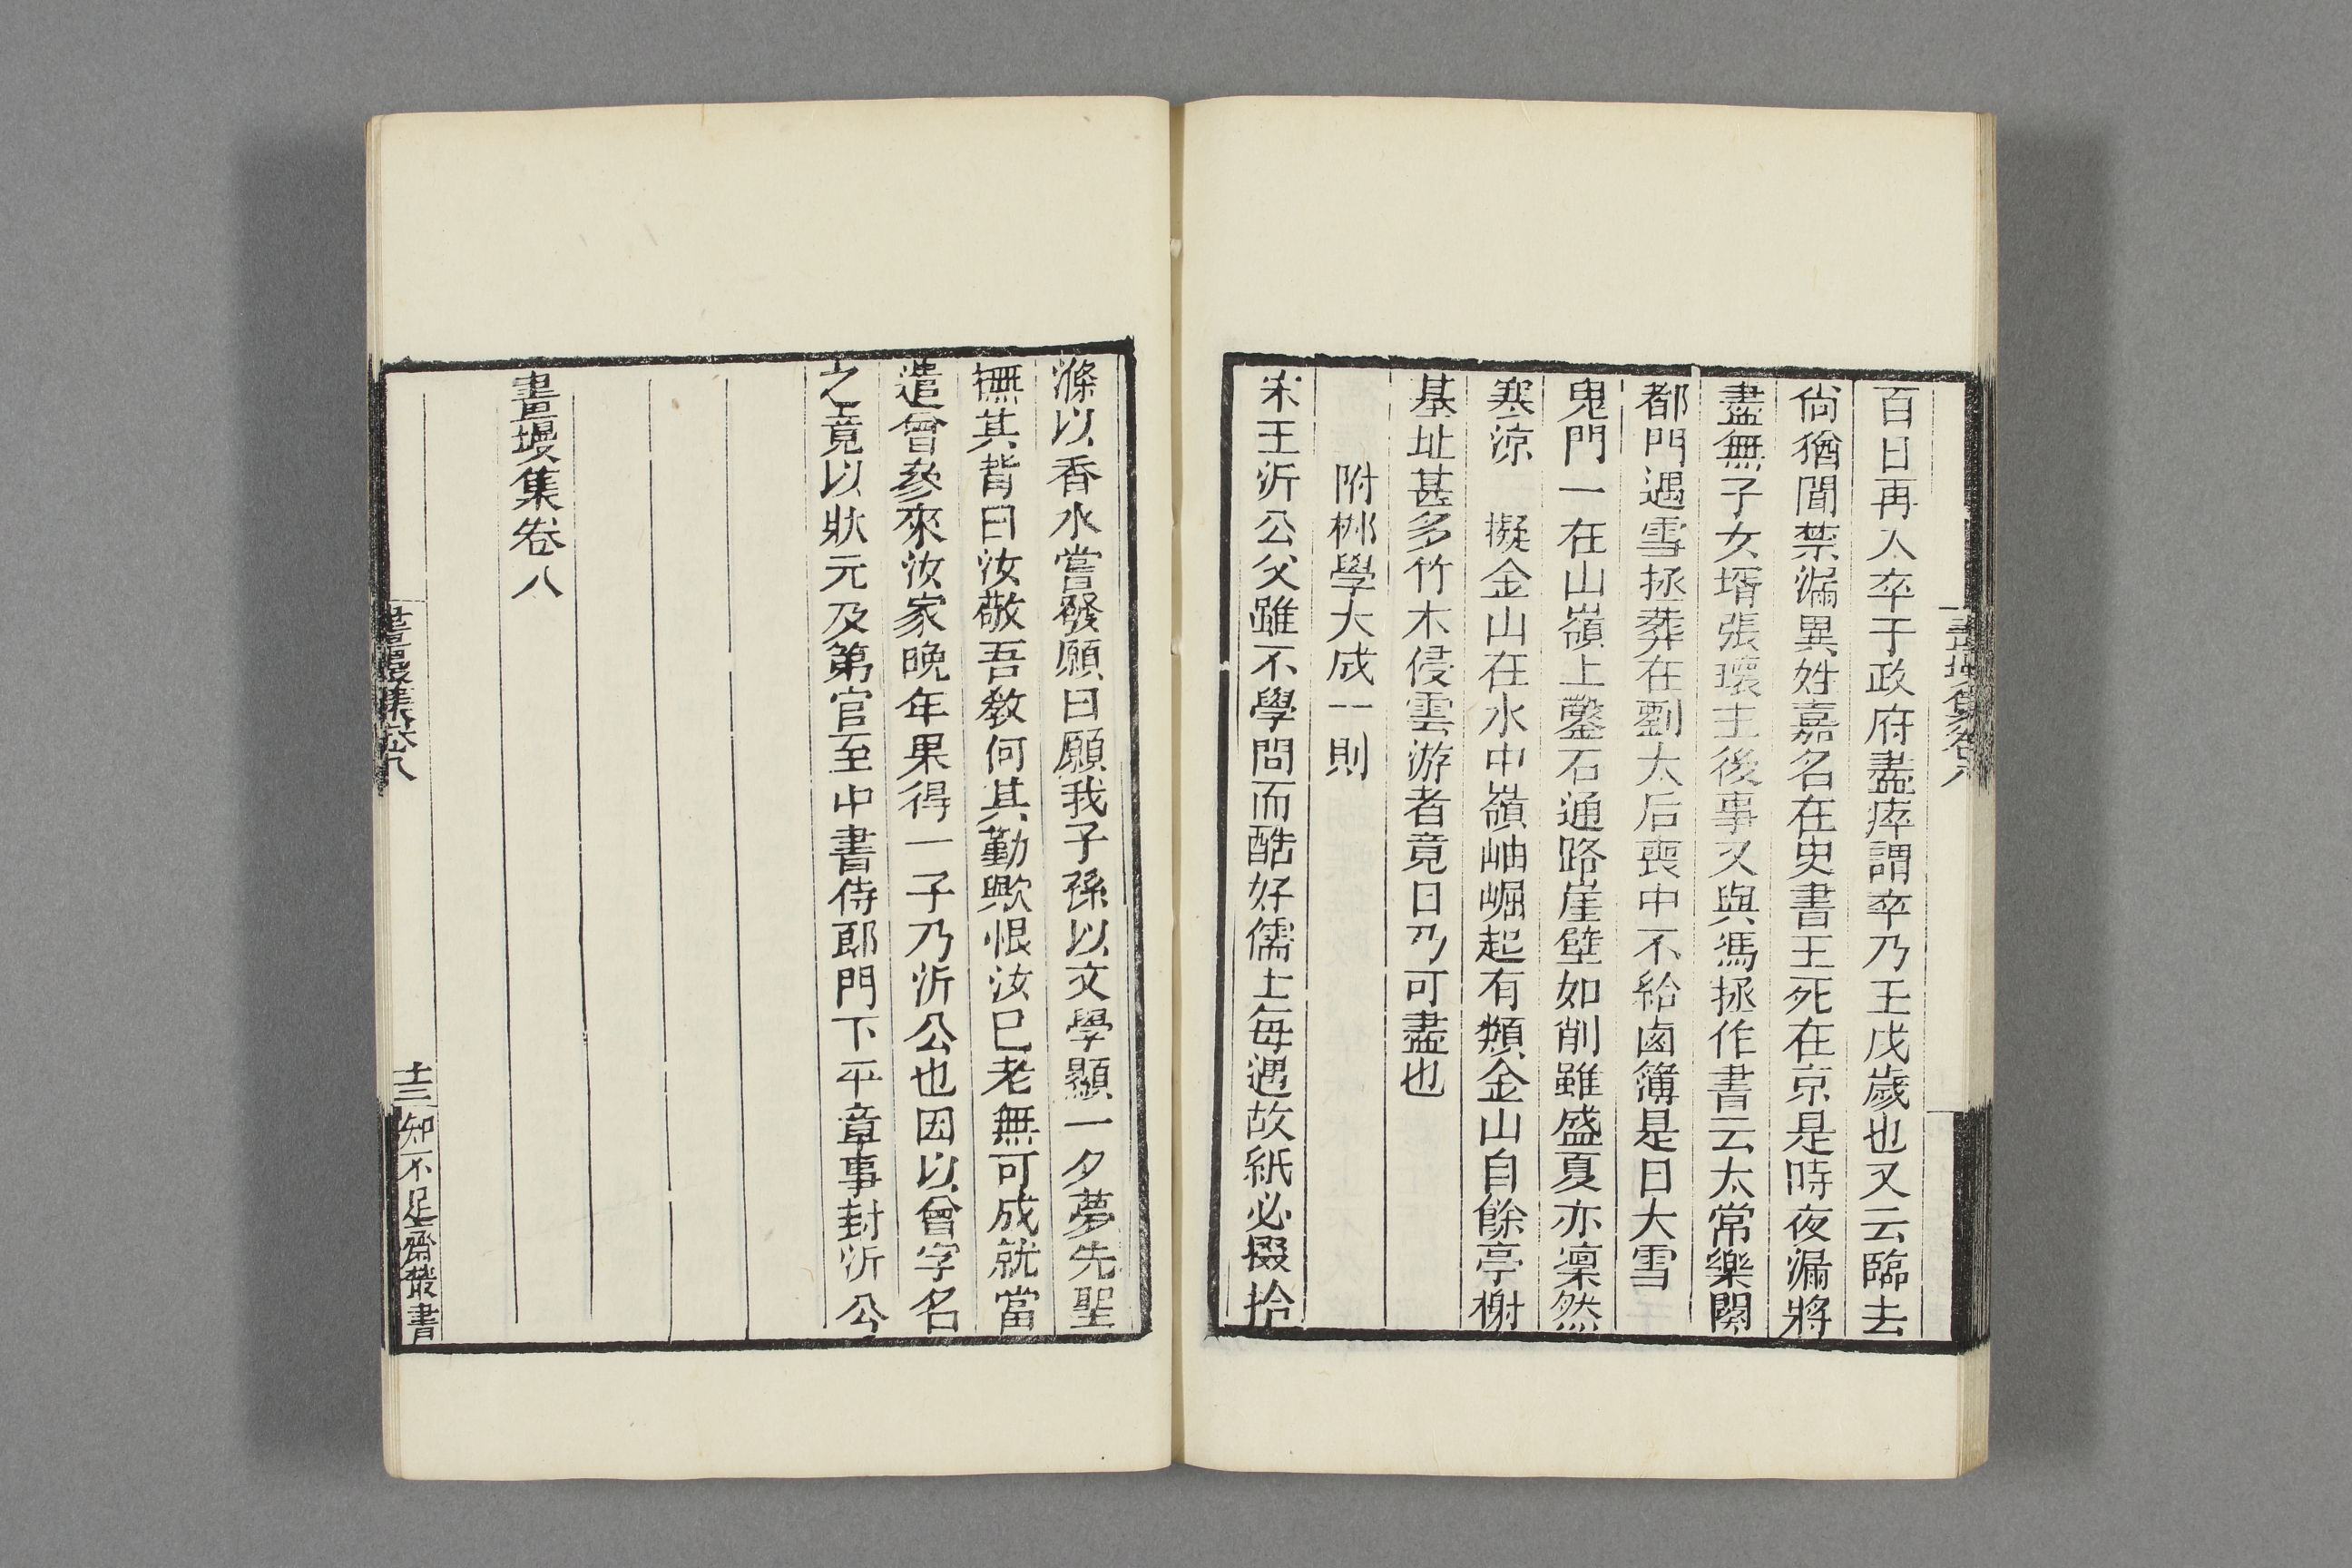 百日再入卒于政府盡瘁謂卒乃壬戌歲也又云臨去
尙猶聞禁漏異姓嘉名在史書王死在京是時夜漏將
盡無子女壻張瓌主後事又與馮拯作書云太常樂闋
都門遇雪拯葬在劉太后喪中不給鹵簿是日大雪
鬼門一在山嶺上鑿石通路崖壁如削雖盛夏亦凜然
寒涼　擬金山在水中嶺岫崛起有類金山自餘亭榭
基址甚多竹木侵雲游者竟日乃可盡也
附梛學大成一則
宋王沂公父雖不學問而酷好儒士每遇故紙必掇拾
滌以香水嘗發願曰願我子孫以文學顯一夕夢先聖
撫其背曰汝敬吾敎何其勤歟恨汝已老無可成就當
遣曾參來汝家晚年果得一子乃沂公也因以曾字名
之竟以狀元及第官至中書侍郎門下平章事封沂公
畫墁集卷八
畫墁集卷八
十三
知不足齋叢書